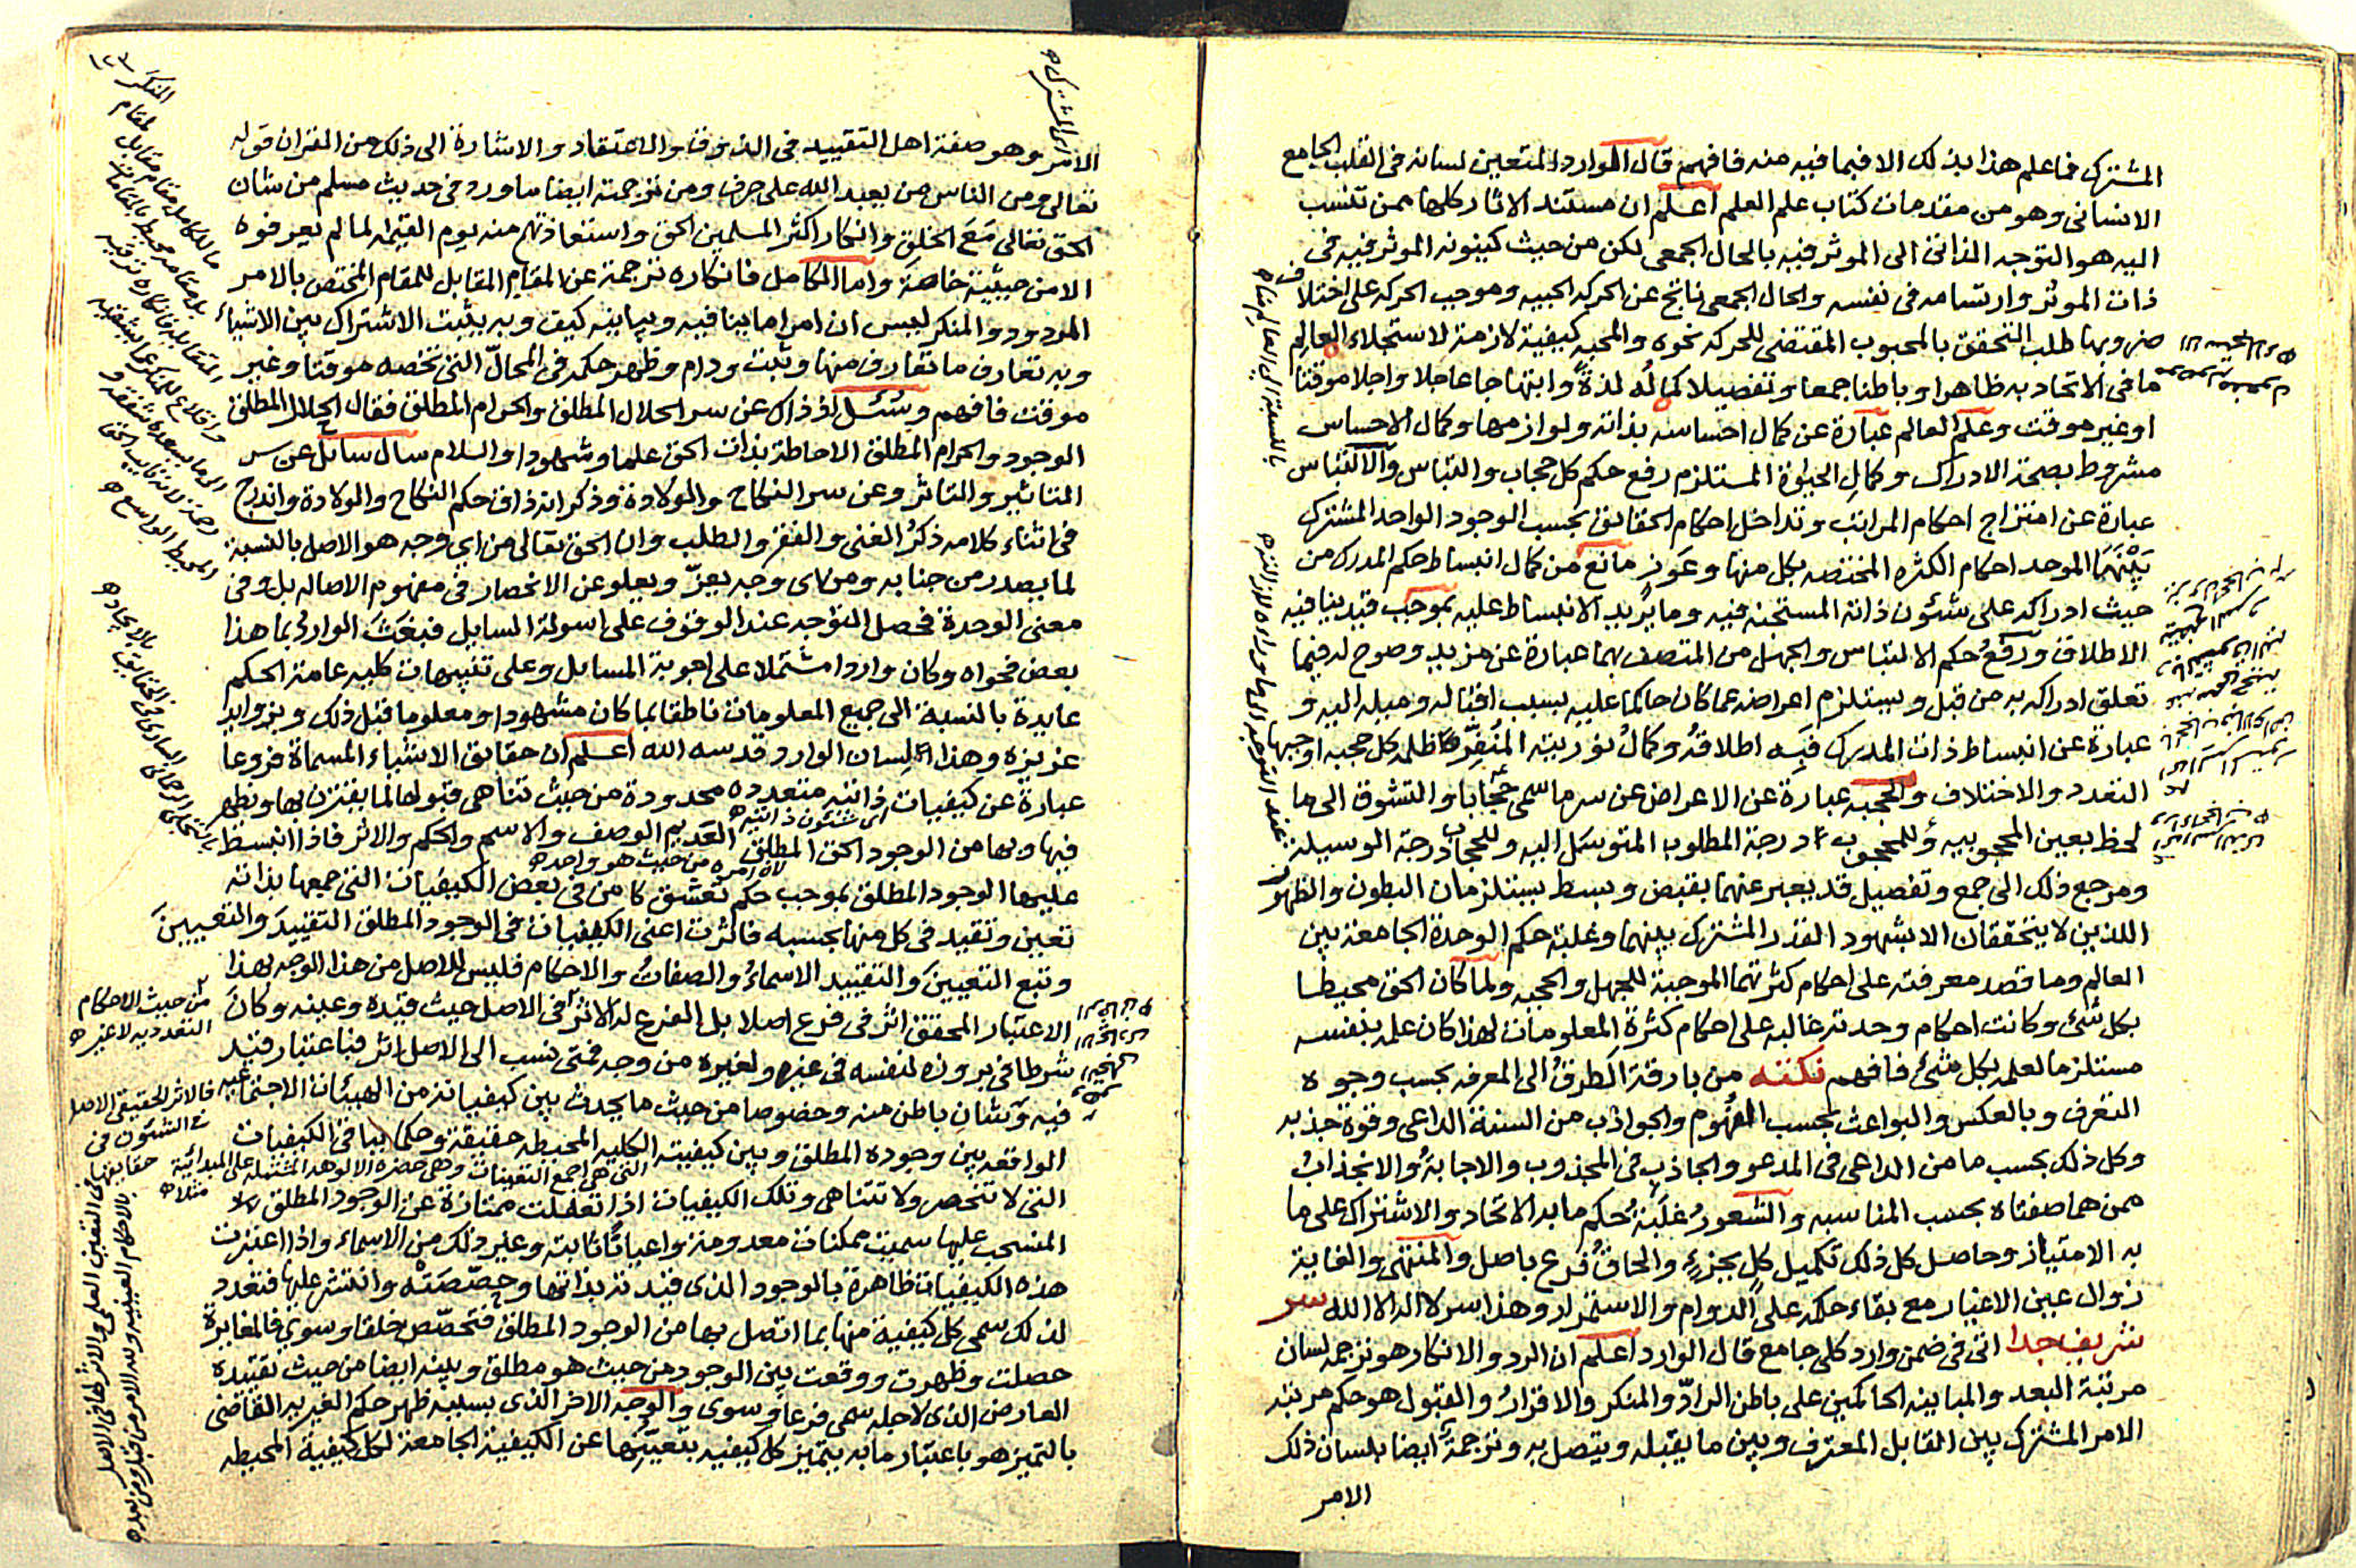 المشترك فما علم هذا بذلك الا فيما فيه منه فافهم قال الوارد المتعين لسانه فى القلب الجامع
الانسانى وهو من مقدمات كتاب علم العلم اعلم ان مستند الاثار كلها ممن تنسب
اليه هو التوجه الذاتى الى الموثر فيه بالحال الجمعى لكن من حيث كينونه الموثر فيه فى
ذات الموثر وارتسامه فى نفسه والحال الجمعى ناتج عن الحركه الحبيه وموجب الحركه على اختلاف
ضروبها طلب التحقق بالمحبوب المقتضى للحركه نحوه والمحبه كيفية لازمة لاستجلاء العالم
ما فى الاتحاد به ظاهرا وباطنا جمعا وتفصيلا كما له لذة وابتهاجا عاجلا واجلا موقتا
او غير موقت وعلم العالم عبارة عن كمال احساسه بذاته ولوازمها وكمال الاحساس
مشروط بصحة الادراك وكمال الحيوة المستلزم رفع حكم كل حجاب والتباس والالتباس
عبارة عن امتزاج احكام المراتب وتداخل احكام الحقائق بحسب الوجود الواحد المشترك
بينها الموحد احكام الكثره المختصه بكل منها وعوز مانع من كمال انبساط حكم المدرك من
حيث ادراكه على شئون ذاته المستجنه فيه وما يريد الانبساط عليه بموجب قيد ينافيه
الاطلاق ورفع حكم الالتباس والجهل من المتصف بهما عبارة عن مزيد وضوح له فيما
تعلق ادراكه به من قبل ويستلزم اعراضه عما كان حاكما عليه بسبب اقباله وميله اليه و
عبارة عن انبساط ذات المدرك فيه اطلاقه وكمال نوريته المنفرة ظلمه كل حجبه اوجبها
التعدد والاختلاف والحجبه عبارة عن الاعراض عن سر ما سمى حجابا والتشوق الى ما
لحظ بعين المحجوبيه وللمحجوب درجة المطلوب المتوسل اليه وللحجاب درجة الوسيلة
ومرجع ذلك الى جمع وتفصيل قد يعبر عنهما بقبض وبسط يستلزمان البطون والظهور
اللذين لا يتحققان الا بشهود القدر المشترك بينهما وغلبة حكم الوحدة الجامعة بين
العالم وما قصد معرفته على احكام كثرتهما الموجبة للجهل والحجبه ولما كان الحق محيطا
بكل شئ وكانت احكام وحدته غالبه على احكام كثرة المعلومات لهذا كان علمه بنفسه
مستلزما لعلمه بكل شئ فافهم نكته من بارقة الطرق الى المعرفه بحسب وجوه
التعرف وبالعكس والبواعث بحسب الهموم والجواذب من السنة الداعى وقوة جذبه
وكل ذلك بحسب ما من الداعى فى المدعو والجاذب فى المجذوب والاجابة والانجذاب
ممن هما صفتاه بحسب المناسبه والشعور غلبة حكم ما به الاتحاد والاشتراك على ما
به الامتياز وحاصل كل ذلك تكميل كل بجزء والحاق فرع باصل والمنتهى والغاية
زوال عين الاغيار مع بقاء حكمه على الدوام والاستمرار وهذا سر لا اله الا الله سر
شريف جدا اتى فى ضمن وارد كلى جامع قال الوارد اعلم ان الرد والانكار هو ترجمه لسان
مرتبة البعد والمباينه الحاكمين على باطن الراد والمنكر والاقرار والقبول هو حكم مرتبه
الامر المشترك بين القابل المعترف وبين ما يقبله ويتصل به وترجمة ايضا بلسان ذلك
الامر
الامر وهو صفة اهل التقييد فى الذوق والاعتقاد والاشارة الى ذلك من القران قوله
تعالى ومن الناس من يعبد الله على حرف ومن ترجمته ايضا ما ورد فى حديث مسلم من شان
الحق تعالى مع الخلق وانكار اكثر المسلمين الحق واستعاذتهم منه يوم القيمه لما لم يعرفوه
الا من حيثية خاصة واما الكامل فانكاره ترجمة عن المقام المقابل للمقام المختص بالامر
المردود والمنكر ليس ان امرا ما ينافيه ويباينه كيف وبه يثبت الاشتراك بين الاشياء
وبه تعارف ما تعارف منها وثبت ودام وظهر حكمه فى المحال التى تخصه موقتا وغير
موقت فافهم وسئل اذ ذاك عن سر الحلال المطلق والحرام المطلق فقال الحلال المطلق
الوجود والحرام المطلق الاحاطة بذات الحق علما وشهودا والسلام سال سائل عن سر
التاثير والتاثر وعن سر النكاح والولادة وذكر انه ذاق حكم النكاح والولادة واندرج
فى اثناء كلامه ذكر الغنى والفقر والطلب وان الحق تعالى من اى وجه هو الاصل بالنسبة
لما يصدر من جنابه ومن اى وجه يعز ويعلو عن الانحصار فى مفهوم الاصاله بل وفى
معنى الوحدة فحصل التوجه عند الوقوف على اسولة السايل فبغت الوارد بما هذا
بعض فحواه وكان واردا مشتملا على اجوبة المسائل وعلى تنبيهات كليه عامة الحكم
عايدة بالنسبة الى جميع المعلومات ناطقا بما كان مشهودا ومعلوما قبل ذلك وبزوايد
عزيزه وهذا لسان الوارد قدسه الله اعلم ان حقائق الاشياء المسماة فروعا
عبارة عن كيفيات ذاتيه متعدده محدودة من حيث تناهى قبولها لما يقترن بها ويظهر
اى شئون ذاتيه
فيها وبها من الوجود الحق المطلق العديم الوصف والاسم والحكم والاثر فاذا انبسط
من حيث هو واحد
عليها الوجود المطلق بموجب حكم تعشق كامن فى بعض الكيفيات التى جمعها بذاته
تعين وتقيد فى كل منها بحسبه فاثرت اعنى الكيفيات فى الوجود المطلق التقييد والتعيين
وتبع التعيين والتقييد الاسماء والصفات والاحكام فليس للاصل من هذا الوجه بهذا
الاعتبار المحقق اثر فى فرع اصلا بل الفرع له الاثر فى الاصل حيث قيده وعينه وكان
شرطا فى بروزه لنفسه فى غيره ولغيره من وجه فمتى نسب الى الاصل اثر فباعتبار قيد
فيه وبشان باطن منه وخصوصا من حيث ما يحدث بين كيفياته من الهيئات الاجتماعيه
الواقعه بين وجوده المطلق وبين كيفيته الكليه المحيطه حقيقة وحكما بباقى الكيفيات
التى هى اجمع التعينات وهى حضرة الالوهه المشتمله على المبدائية
التى لا تنحصر ولا تتناهى وتلك الكيفيات اذا تعقلت ممتازة عن الوجود المطلق
المنسحب عليها سميت ممكنات معدومة واعيانا ثابته وغير ذلك من الاسماء واذا اعتبرت
هذه الكيفيات ظاهرة بالوجود الذى قيدته بذاتها وخصصته وانتشر عليها فتعدد
لذلك سمى كل كيفية منها بما اتصل بها من الوجود المطلق فتخصص خلقا وسوى فالمغايرة
حصلت وظهرت ووقعت بين الوجود من حيث هو مطلق وبينه ايضا من حيث تقييده
العارض الذى لاجله سمى فرعا وسوى والوجه الاخر الذى بسببه ظهر حكم الغيريه القاضى
بالتميز هو باعتبار ما به يتميز كل كيفيه بتعينها عن الكيفية الجامعة لكل كيفية المحيطه
من حيث الاحكام
التعدديه لا غير
فالاثر الحقيقى الاصل